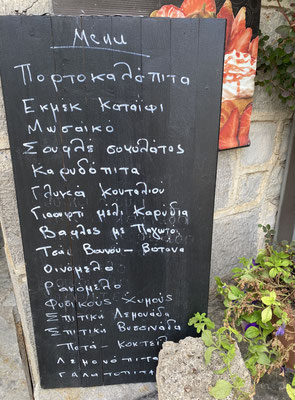 Menu
Πορτοκαλόπιτα
Εκμεκ Καταϊφι
Μωσαικό
Σουφλέ σοκολάτας
Καρυδόπιτα
Γλυκά Κουταλιού
Γιαούρτι μέλι Καρύδια
Βαφλες με Παγωτό
Τσάι Βουνού - Βότανα
Οινομελο
Ρακόμελο
Φυσικούς Χυμούς
Σπιτική Λεμονάδα
Σπιτική Βυσσινάδα
Ποτά - Κοκτέιλ
Λεμονόπιτα
Γαλατοπιτα